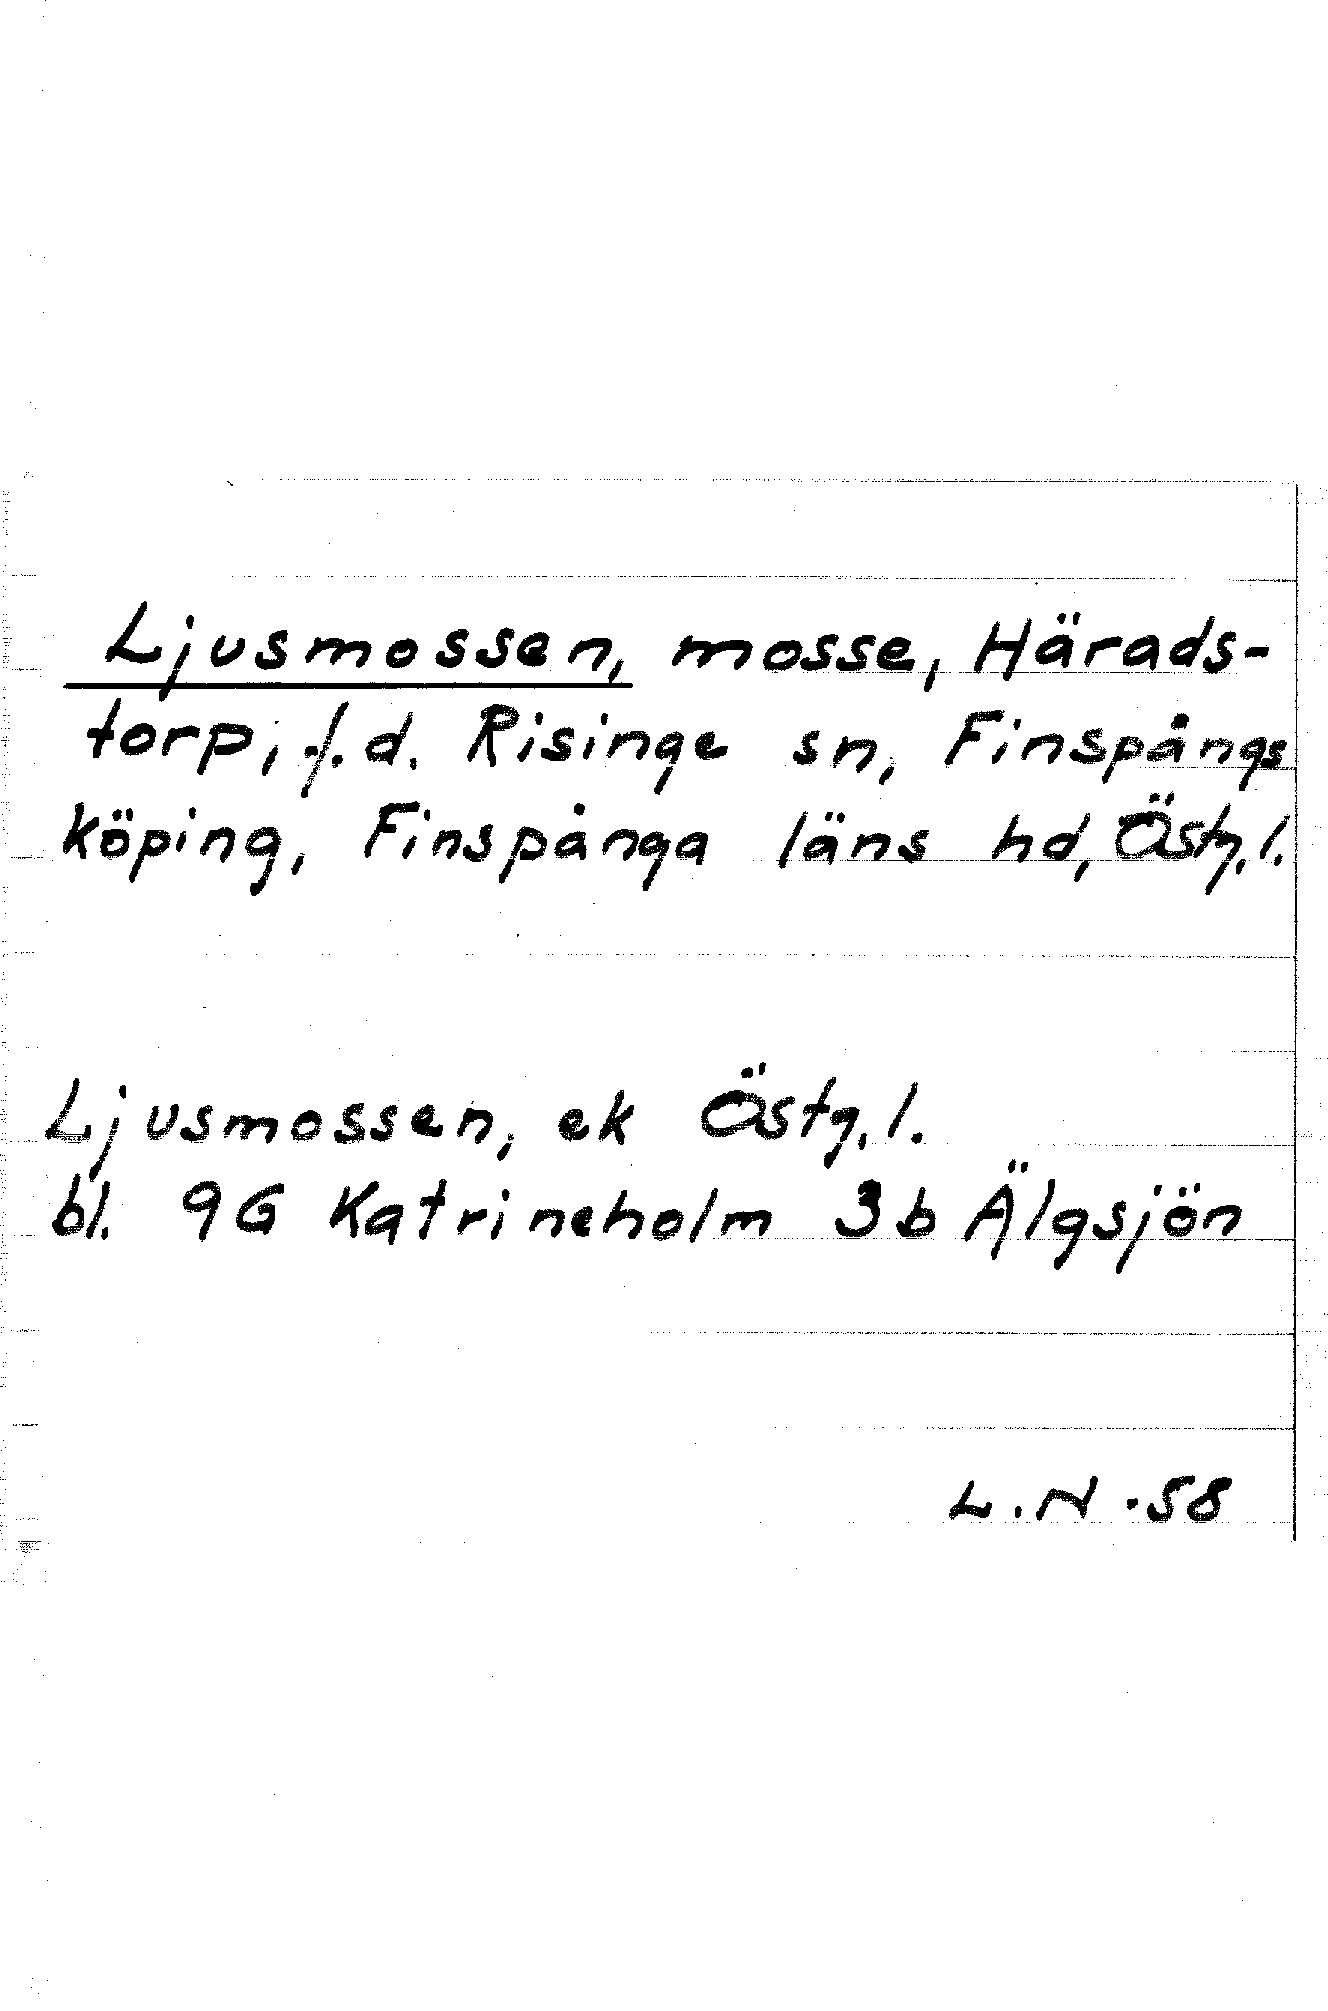 Ljusmossen, mosse, Härads-
torp, f.d. Risinge sn, Finspångs
köping, Finspånga läns hd, Östg.l.
Ljusmossen, ek Östg.l.
bl. 9G Katrineholm 3b Älgsjön
L.N.58